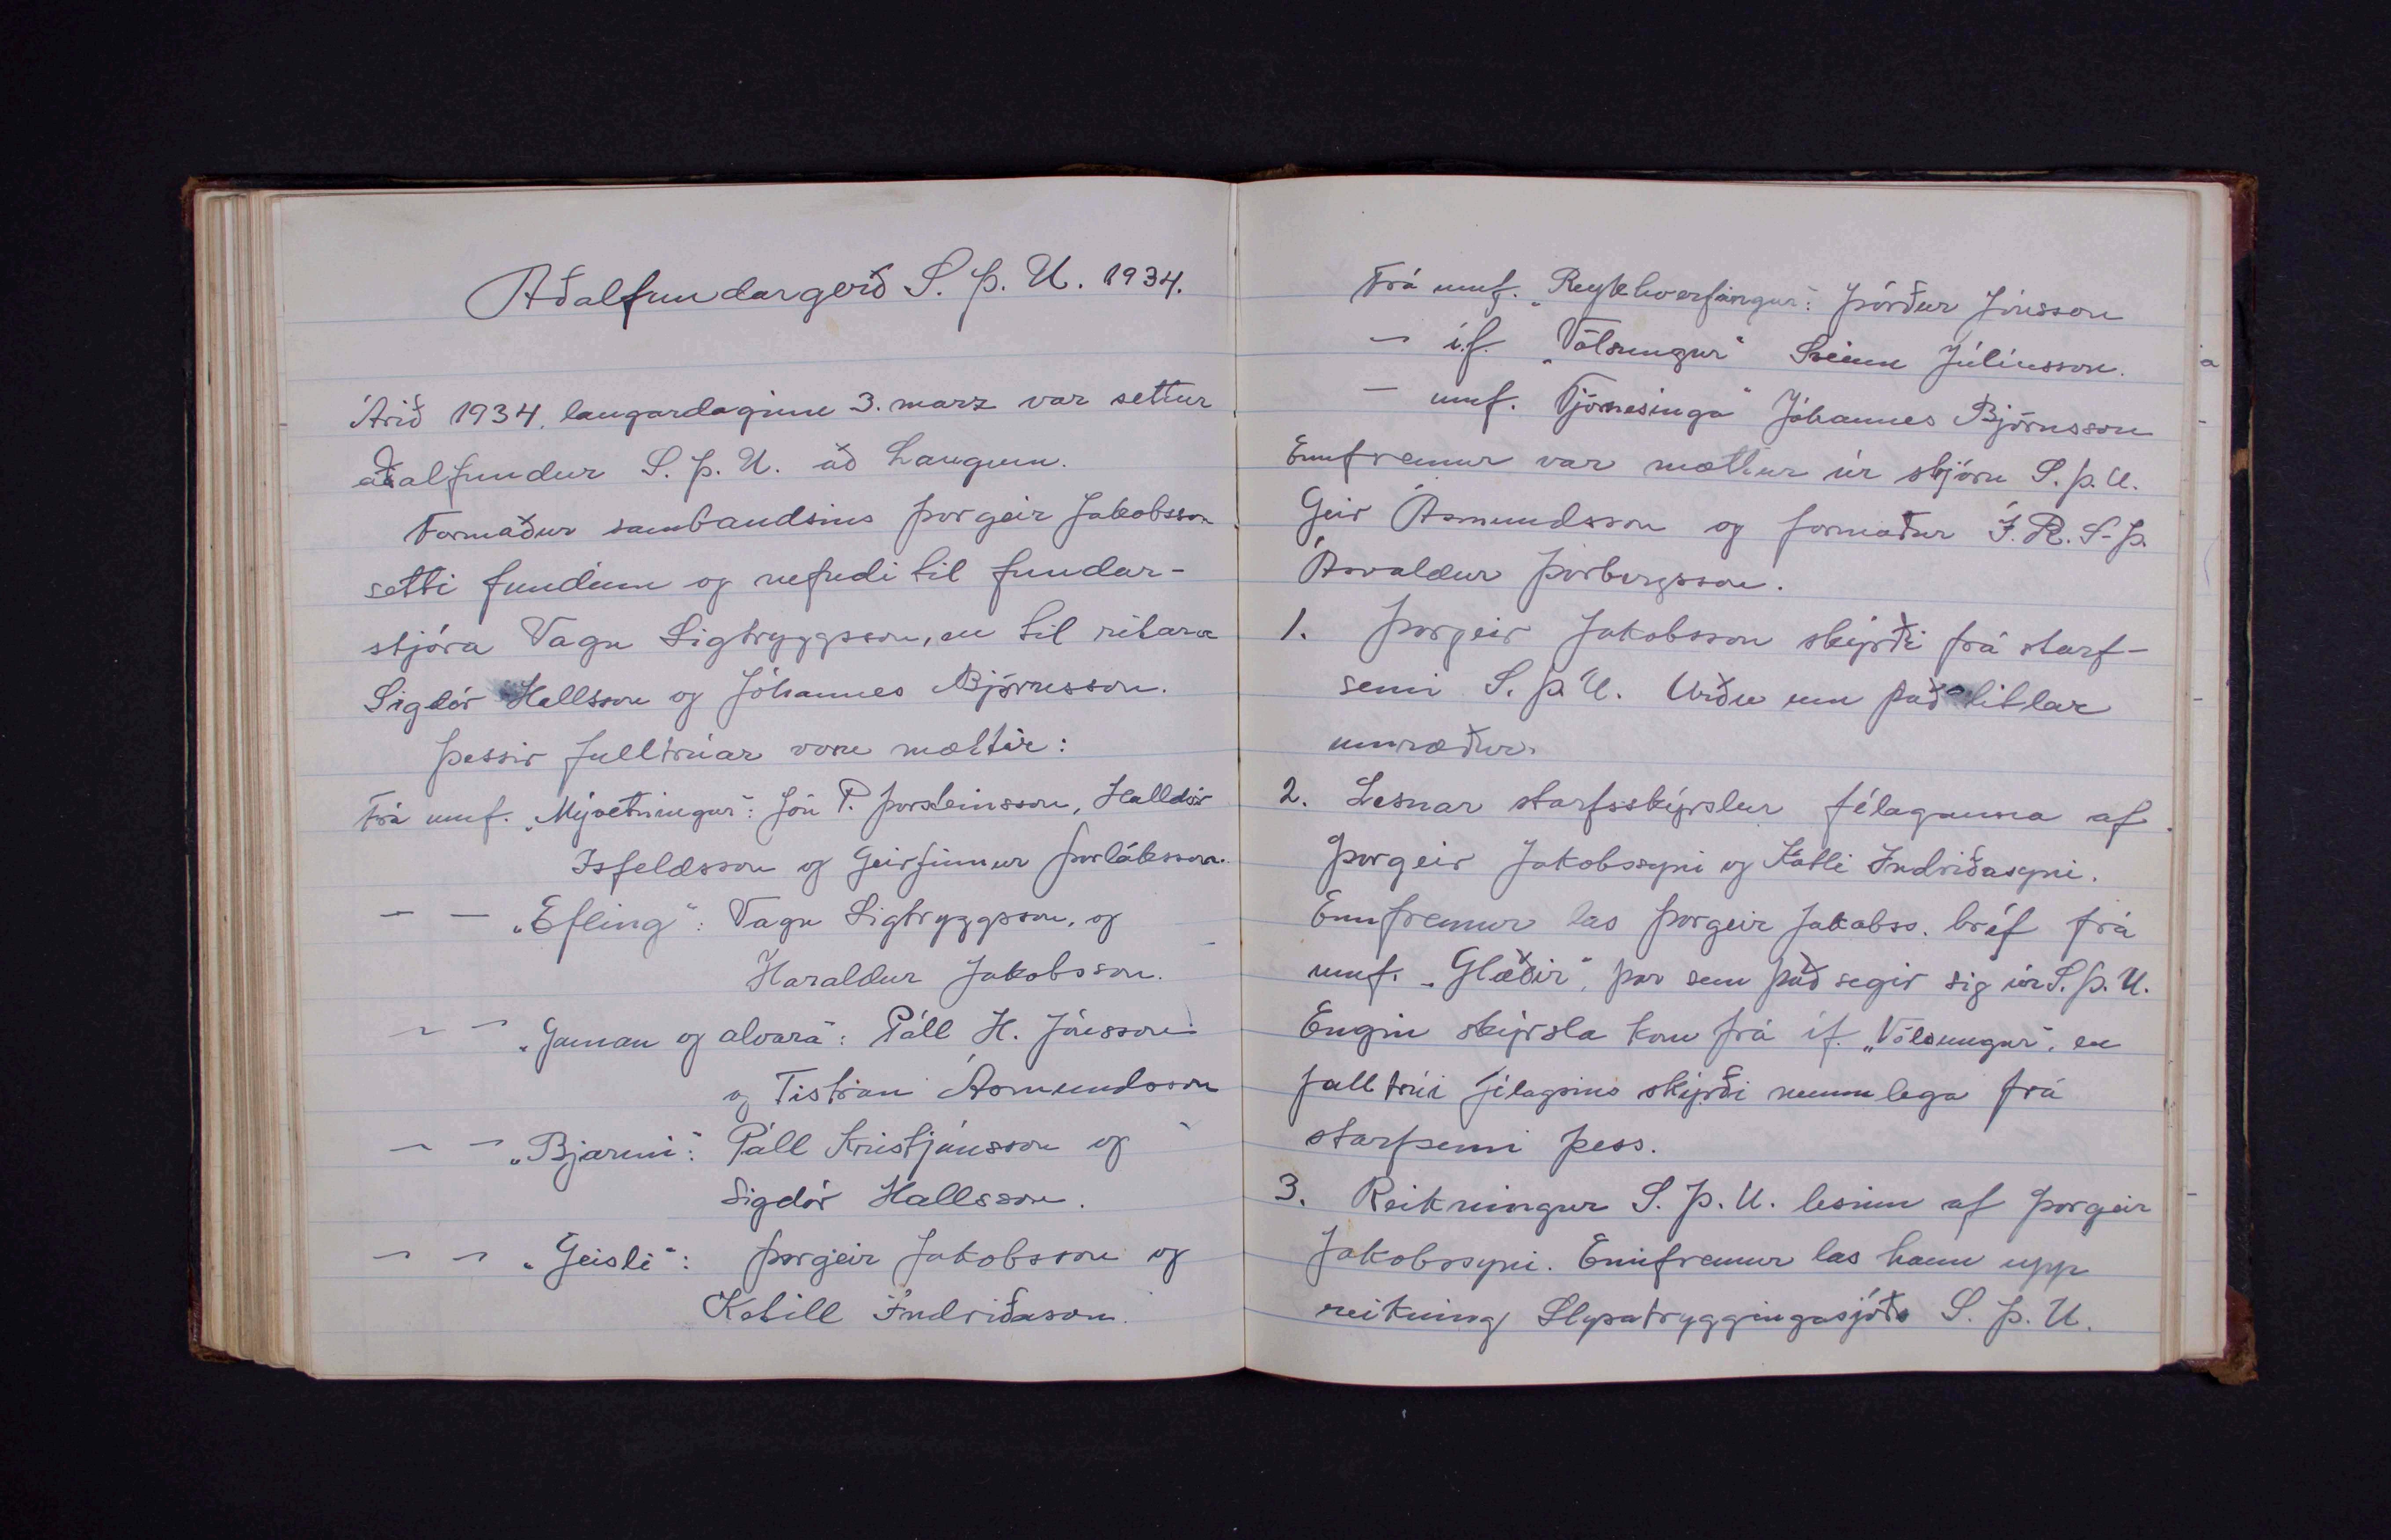 Aðalfundargerð S. þ. U. 1934.
Árið 1934, laugardaginn 3. marz var settur
aðalfundur S. þ. U. að Laugum.
Formaður sambandsins Þorgeir Jakobsson
setti fundinn og nefndi til fundar-
stjóra Vagn Sigtryggsson, en til ritara
Sigdór Hallsson og Jóhannes Björnsson.
Þessir fulltrúar voru mættir:
Frá umf. „Mývetningur": Jón P. Þorsteinsson, Halldór
Ísfeldsson og Geirfinnur Þorláksson.
— — „Efling": Vagn Sigtryggsson, og
Haraldur Jakobsson.
— — „Gaman og alvara": Páll H. Jónsson
og Tistran Ásmundsson
— — „Bjarmi": Páll Kristjánsson og
Sigdór Hallsson.
— — „Geisli": Þorgeir Jakobsson og
Ketill Indriðason.
Frá umf. „Reykhverfingur": Þórður Jónsson
— í.f. „Völsungur" Sveinn Júlíusson.
— umf. Tjörnesinga" Jóhannes Björnsson
Ennfremur var mættur úr stjórn S. þ. U.
Geir Ásmundsson og formaður Í. R. S-þ.
Ásvaldur Þorbergsson.
1. Þorgeir Jakobsson skýrði frá starf-
semi S. þ. U. Urðu um það litlar
umræður.
2. Lesnar starfsskýrslur félaganna af
Þorgeir Jakobssyni og Katli Indriðasyni.
Ennfremur las Þorgeir Jakobss. bréf frá
umf. „Glæðir", þar sem það segir sig úr S. þ. U.
Engin skýrsla kom frá íf. „Völsungur", en
fulltrúi félagsins skýrði munnlega frá
starfsemi þess.
3. Reikningur S. þ. U. lesinn af Þorgeir
Jakobssyni. Ennfremur las hann upp
reikning Slysatryggingasjóðs S. þ. U.